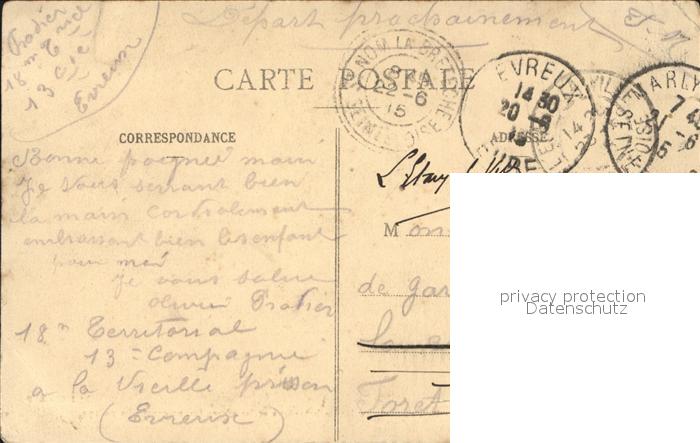 Départ prochainement
F. M
Pradier
18 m Terid
13 Cie
Evreux
CARTE POSTALE
NOM LA BRETECHE
22-6
15
SEINE OISE
EVREUX
14 30
20 -6
15
MARLY
7 4
-6
15
SEINE OISE
CORRESPONDANCE
ADRESSE
Bonne poignée main
Je vous serrant bien
la main cordialement
embrassant bien les enfant
pour moi
Je vous salue
Olivier Pradier
18 m Territorial
13 = Compagnie
a la Vieille prison
(Evreux)
L'Etang la Ville
Mons
de gar
la
Foret
privacy protection
Datenschutz